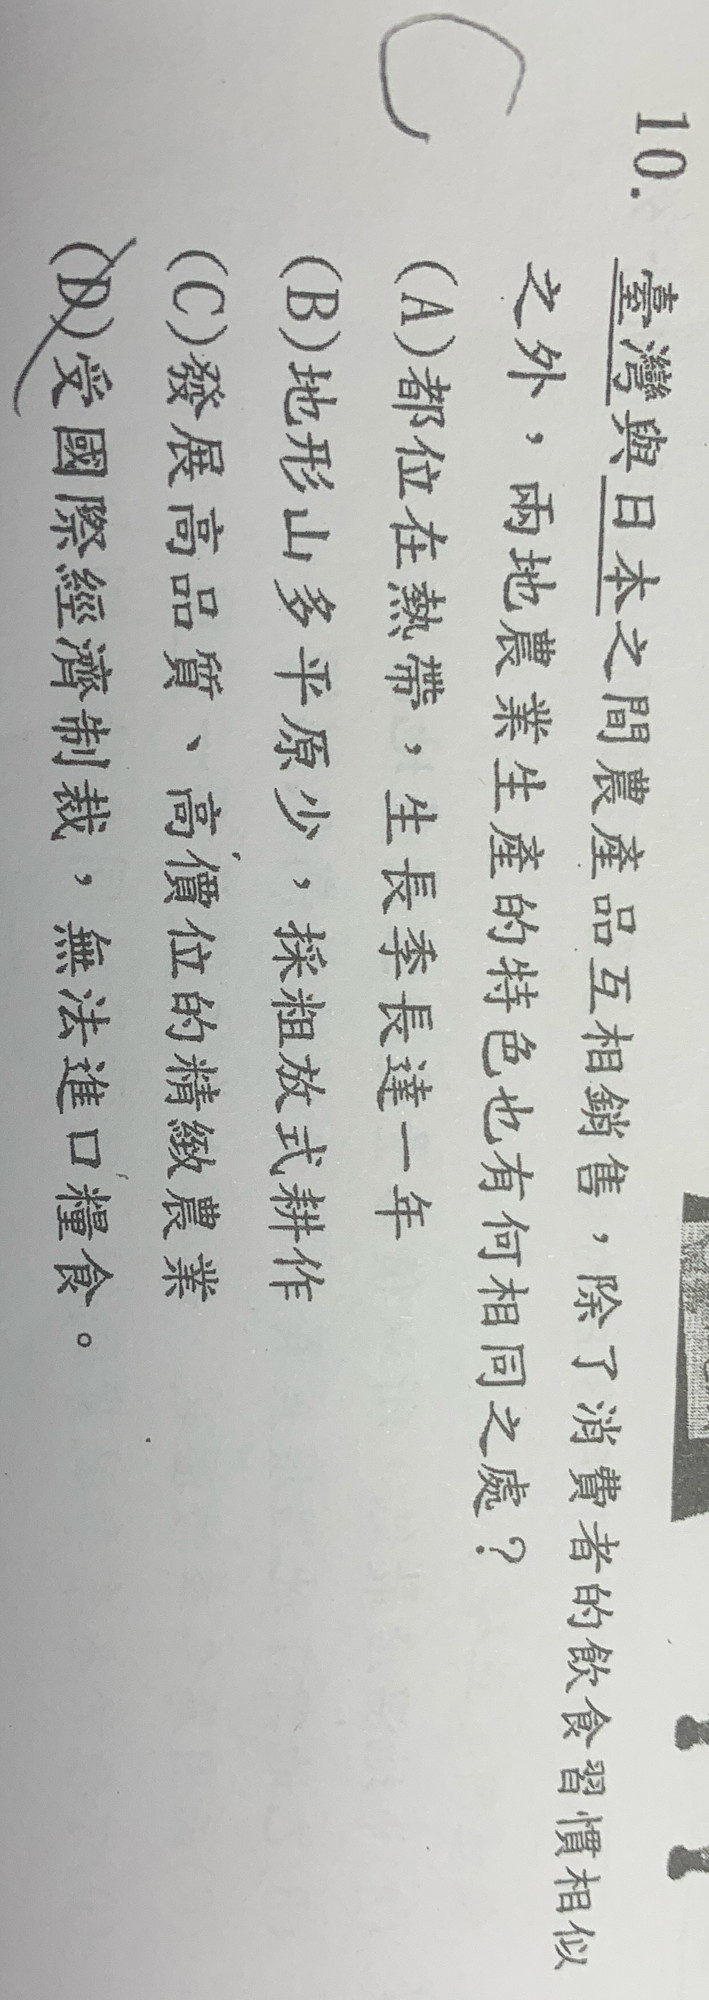 C
10. 臺灣與日本之間農產品互相銷售，除了消費者的飲食習慣相似
之外，兩地農業生產的特色也有何相同之處？
(A)都位在熱帶，生長季長達一年
(B)地形山多平原少，採粗放式耕作
(C)發展高品質、高價位的精緻農業
(D)受國際經濟制裁，無法進口糧食。